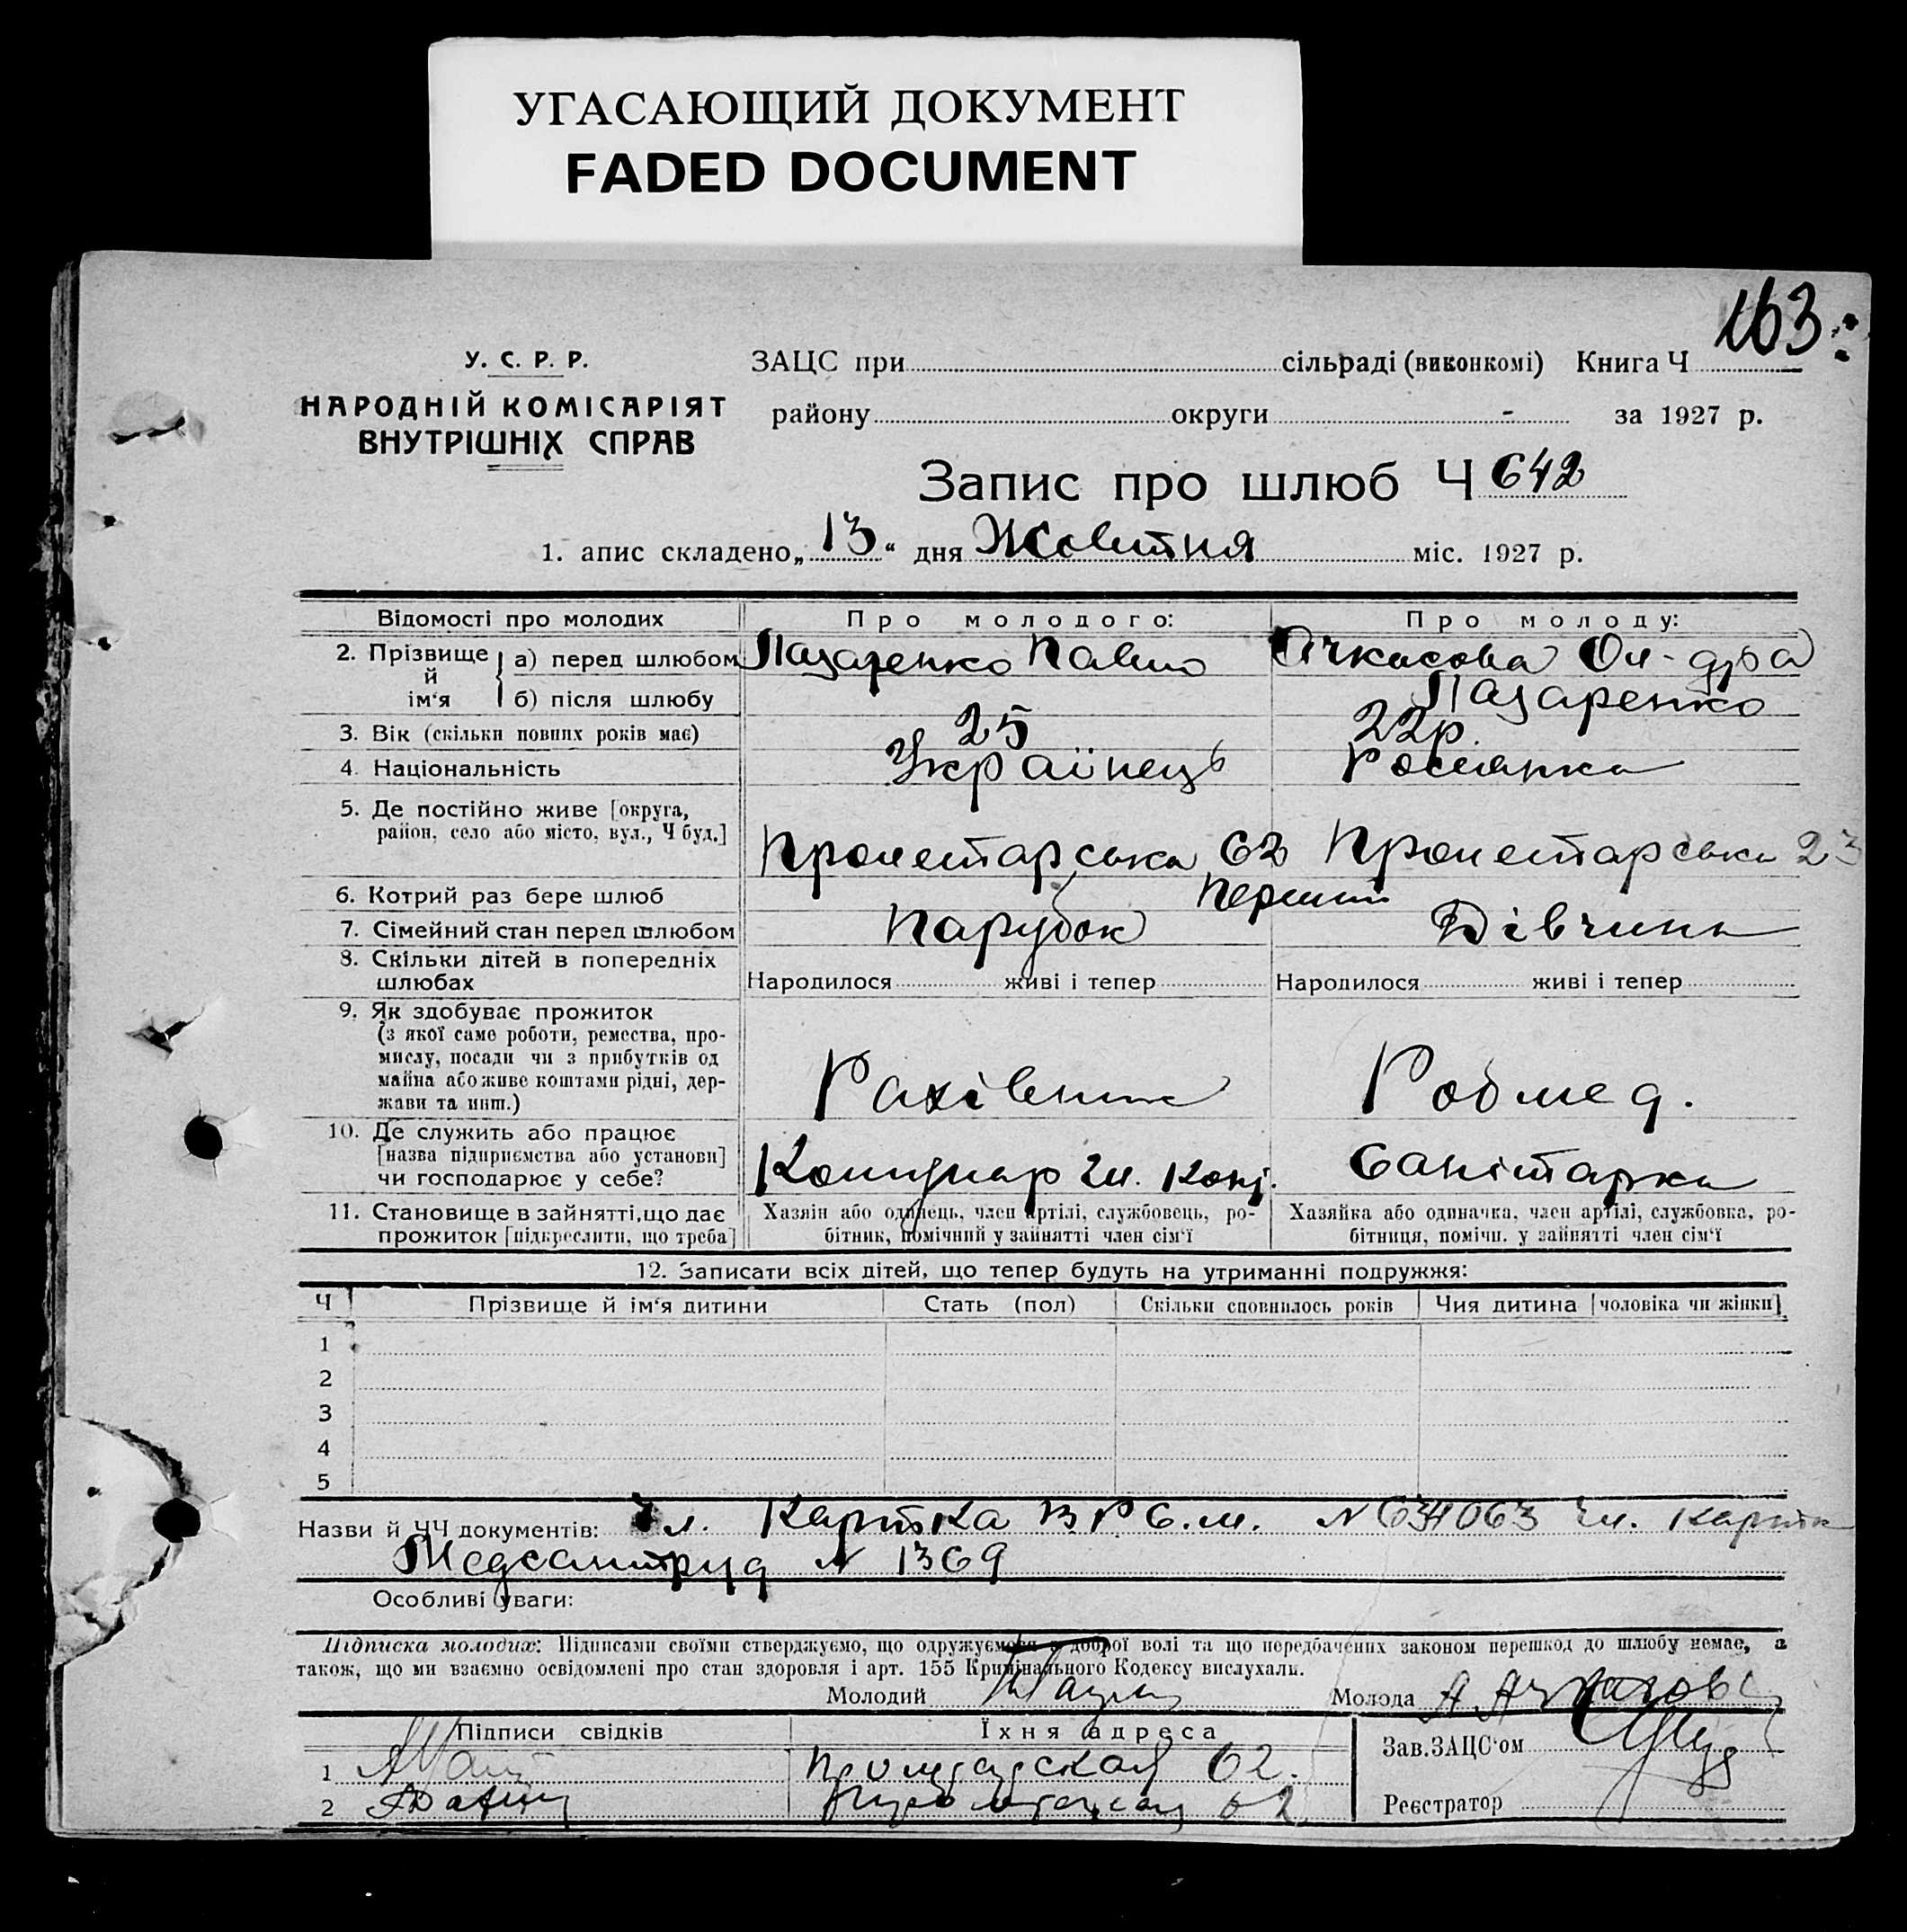 УГАСАЮЩИЙ ДОКУМЕНТ
FADED DOCUMENT
163
У. С. Р. Р.
НАРОДНІЙ КОМІСАРІЯТ
ВНУТРІШНІХ СПРАВ
ЗАЦС при сільраді (виконкомі) Книга Ч
району округи - за 1927 р.
Запис про шлюб Ч 642
1. апис складено „13“ дня Жовтня міс. 1927 р.
Відомості про молодих Про молодого: Про молоду:
2. Прізвище й ім‘я а) перед шлюбом Лазаренко Павло Ачкасова Ол-дра
б) після шлюбу Лазаренко
3. Вік (скільки повних років має) 25 22р.
4. Національність Українець Росіянка
5. Де постійно живе [округа,
район, село або місто, вул., Ч буд.] Пролетарська 62 Пролетарська 23
6. Котрий раз бере шлюб Перший
7. Сімейний стан перед шлюбом Парубок Дівчина
8. Скільки дітей в попередніх
шлюбах Народилося живі і тепер Народилося живі і тепер
9. Як здобуває прожиток
(з якої саме роботи, ремества, про-
мислу, посади чи з прибутків од
майна або живе коштами рідні, дер-
жави та инш.) Рахівник Робмед.
10. Де служить або працює
[назва підприємства або установи]
чи господарює у себе? Санітарка
11. Становище в зайнятті, що дає
прожиток [підкреслити, що треба]
Хазяін або одинець, член артілі, службовець, ро-
бітник, помічний у зайнятті член сім‘ї
Хазяйка або одиначка, член артілі, службовка, ро-
бітниця, помічн. у зайнятті член сім‘ї
12. Записати всіх дітей, що тепер будуть на утриманні подружжя:
Ч Прізвище й ім‘я дитини Стать (пол) Скільки сповнилось років Чия дитина [чоловіка чи жінки]
1
2
3
4
5
Назви й ЧЧ документів: чл. Картка В Р С.м. N 634063 чл. картка
Медсантруд N 1369
Особливі уваги:
Підписка молодих: Підписами своїми стверджуємо, що одружуємося з доброї волі та що передбачених законом перешкод до шлюбу немає, а
також, що ми взаємно освідомлені про стан здоровля і арт. 155 Кримінального Кодексу вислухали.
Молодий Молода А Ачкасова
Підписи свідків Їхня адреса
Зав. ЗАЦС‘ом
1 62.
2 62
Реєстратор